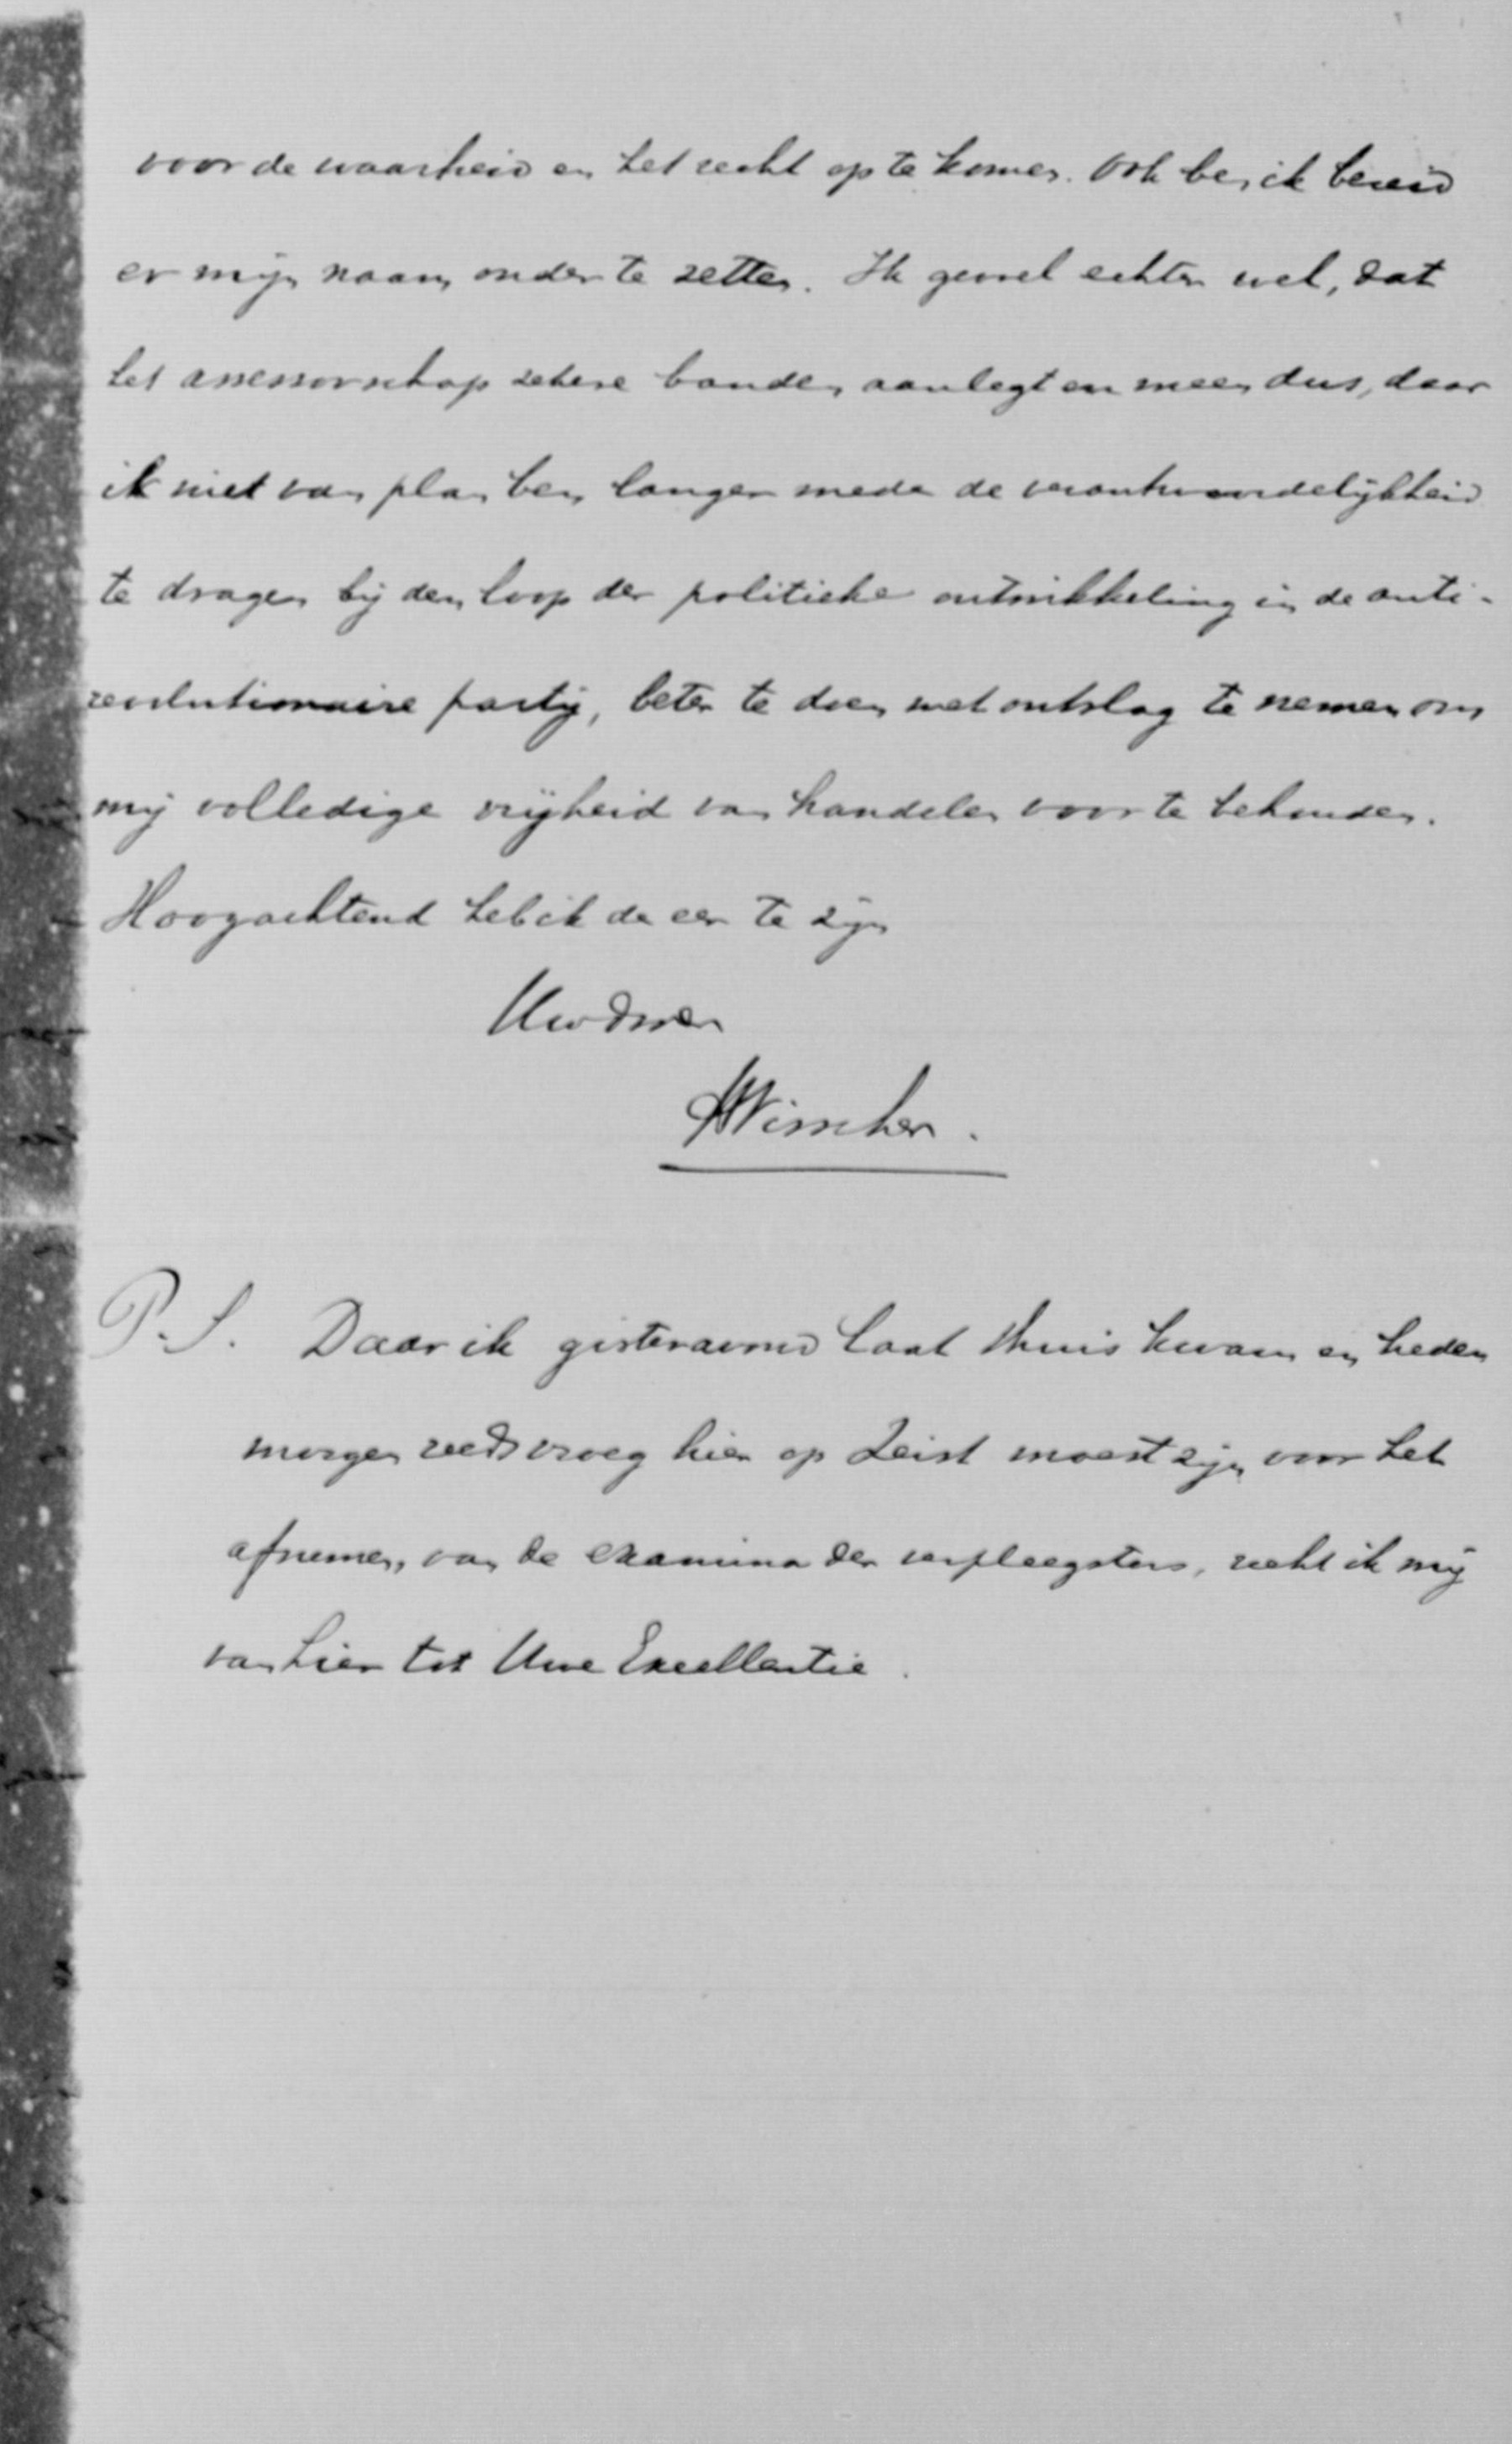 voor de waarheid en het recht op te komen. Ook ben ik bereid
er mijn naam onder te zetten. Ik gevoel echter wel, dat
het assessorschap zekere banden aanlegt en meen dus, daar
ik niet van plan ben langer mede de verantwoordelijkheid
te dragen bij den loop der politieke ontwikkeling in de anti-
revolutionaire partij, beter te doen met ontslag te nemen om
mij volledige vrijheid van handelen voor te behouden.
Hoogachtend heb ik de eer te zijn
Uwdwer
HVisscher.
P.S. Daar ik gisteravond laat thuis kwam en heden
morgen reeds vroeg hier op Zeist moest zijn voor het
afnemen van de examina der verpleegsters, richt ik mij
van hier tot Uwe Excellentie.